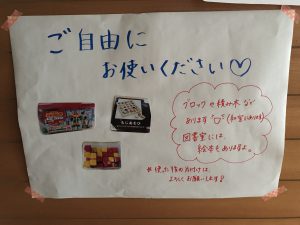 ご自由に
お使いください♡
ブロックや積み木など
あります(和室にあります)
図書室には
絵本もありますよ。
*使った後の片付けは
よろしくお願いします!